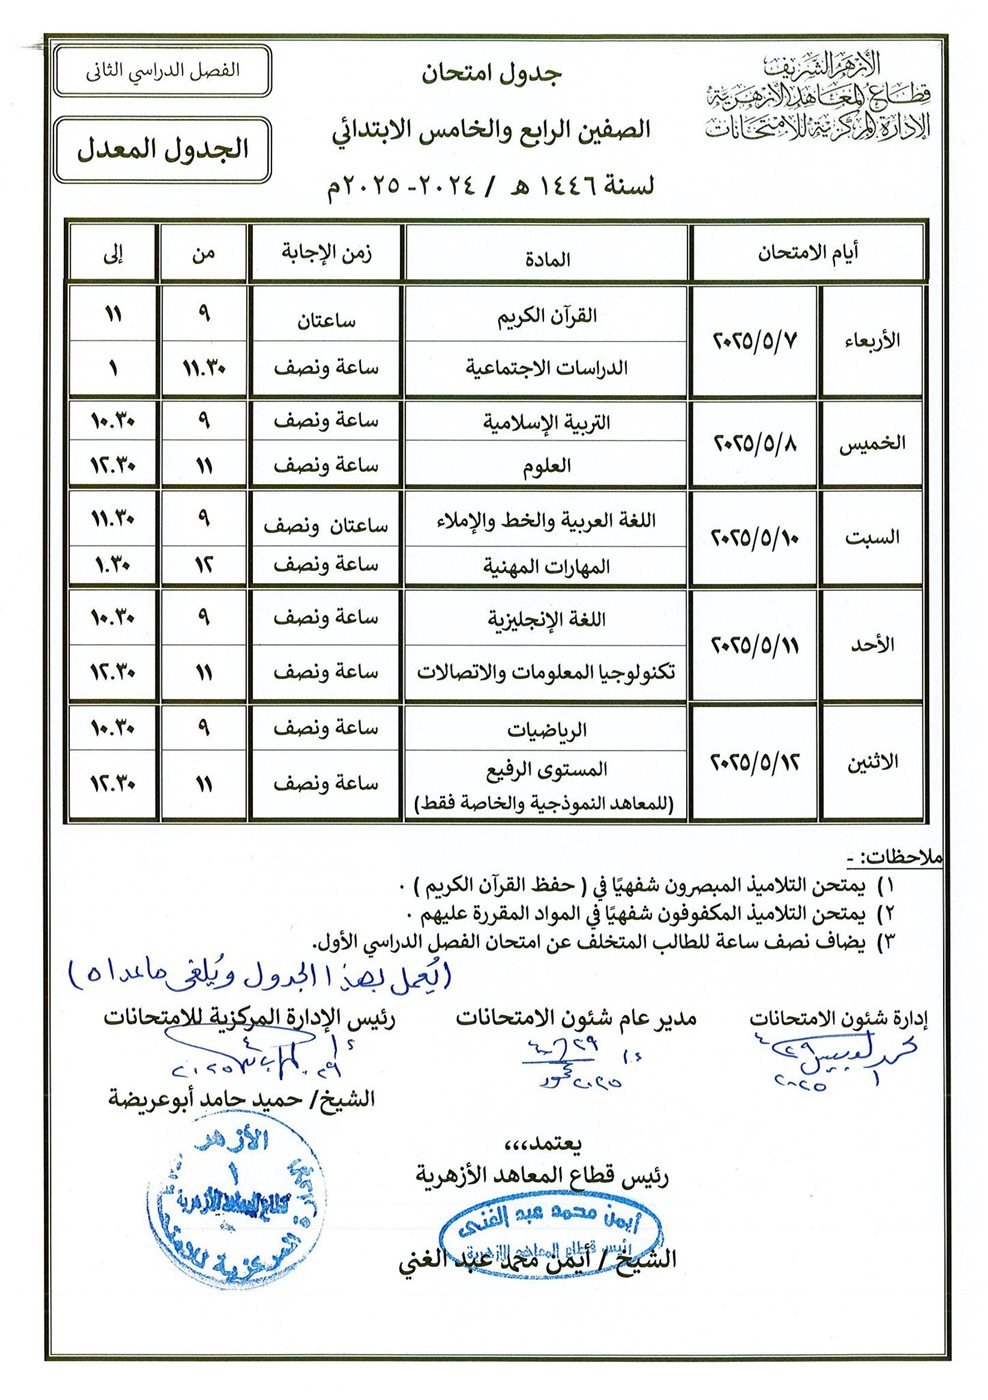 الأزهر الشريف
قطاع المعاهد الأزهرية
الإدارة المركزية للامتحانات
جدول امتحان
الصفين الرابع والخامس الابتدائي
لسنة ١٤٤٦ هـ / ٢٠٢٤- ٢٠٢٥م
الفصل الدراسي الثانى
الجدول المعدل
أيام الامتحان المادة زمن الإجابة من إلى
الأربعاء ٢٠٢٥/٥/٧ القرآن الكريم ساعتان ٩ ١١
الدراسات الاجتماعية ساعة ونصف ١١.٣٠ ١
الخميس ٢٠٢٥/٥/٨ التربية الإسلامية ساعة ونصف ٩ ١٠.٣٠
العلوم ساعة ونصف ١١ ١٢.٣٠
السبت ٢٠٢٥/٥/١٠ اللغة العربية والخط والإملاء ساعتان ونصف ٩ ١١.٣٠
المهارات المهنية ساعة ونصف ١٢ ١.٣٠
الأحد ٢٠٢٥/٥/١١ اللغة الإنجليزية ساعة ونصف ٩ ١٠.٣٠
تكنولوجيا المعلومات والاتصالات ساعة ونصف ١١ ١٢.٣٠
الاثنين ٢٠٢٥/٥/١٢ الرياضيات ساعة ونصف ٩ ١٠.٣٠
المستوى الرفيع ساعة ونصف ١١ ١٢.٣٠
(للمعاهد النموذجية والخاصة فقط)
ملاحظات: -
١) يمتحن التلاميذ المبصرون شفهيًا في ( حفظ القرآن الكريم ) ٠
٢) يمتحن التلاميذ المكفوفون شفهيًا في المواد المقررة عليهم ٠
٣) يضاف نصف ساعة للطالب المتخلف عن امتحان الفصل الدراسي الأول.
(يُعمل بهذا الجدول ويُلغى ماعداه)
إدارة شئون الامتحانات مدير عام شئون الامتحانات رئيس الإدارة المركزية للامتحانات
٢٠٢٥ ٢٠٢٥ ٢٠٢٥
الشيخ/ حميد حامد أبوعريضة
يعتمد،،،
رئيس قطاع المعاهد الأزهرية
أيمن محمد عبد الغنى
رئيس قطاع المعاهد الأزهرية
الشيخ / أيمن محمد عبد الغني
الأزهر
١
قطاع المعاهد الأزهرية
المركزية للامتحانات